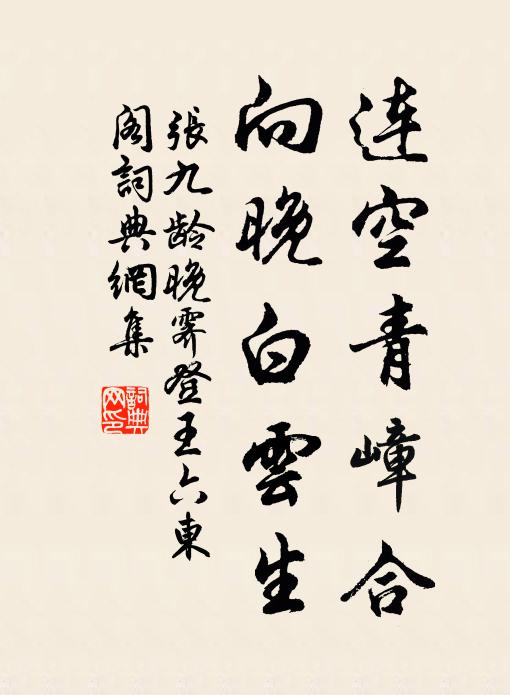 連空青嶂合
向晚白雲生
張九齡晚霽登王六東
閣詞典網集
詞典
网印